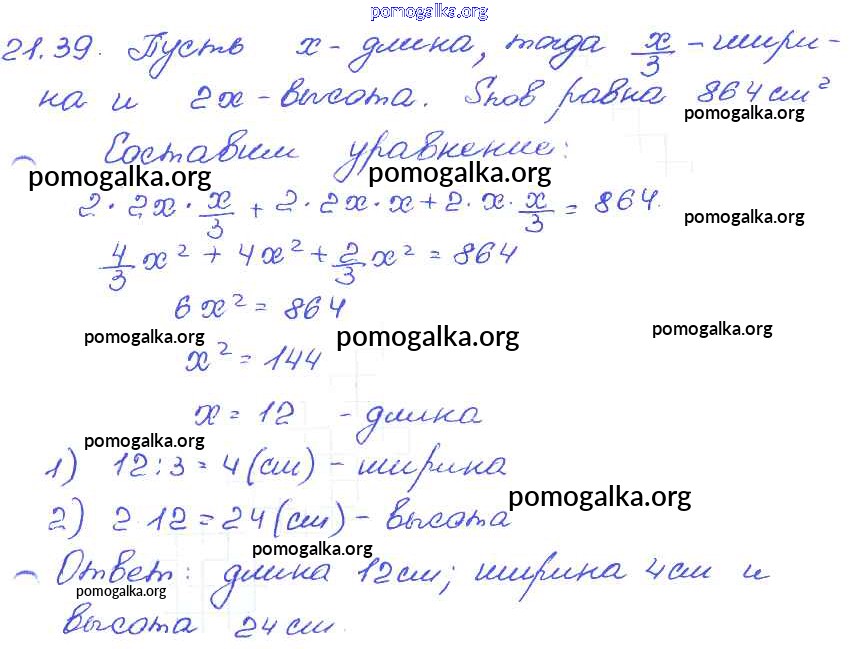 pomogalka.org
21.39. Пусть x - длина, тогда x/3 - шири-
на и 2x - высота. Sпов равна 864 см²
pomogalka.org
Составим уравнение:
pomogalka.org pomogalka.org
2 · 2x · x/3 + 2 · 2x · x + 2 · x · x/3 = 864.
pomogalka.org
4/3 x² + 4x² + 2/3 x² = 864
6x² = 864
pomogalka.org pomogalka.org pomogalka.org
x² = 144
x = 12 - длина
pomogalka.org
1) 12 : 3 = 4 (см) - ширина
pomogalka.org
2) 2 · 12 = 24 (см) - высота
pomogalka.org
Ответ: длина 12 см; ширина 4 см и
pomogalka.org
высота 24 см.